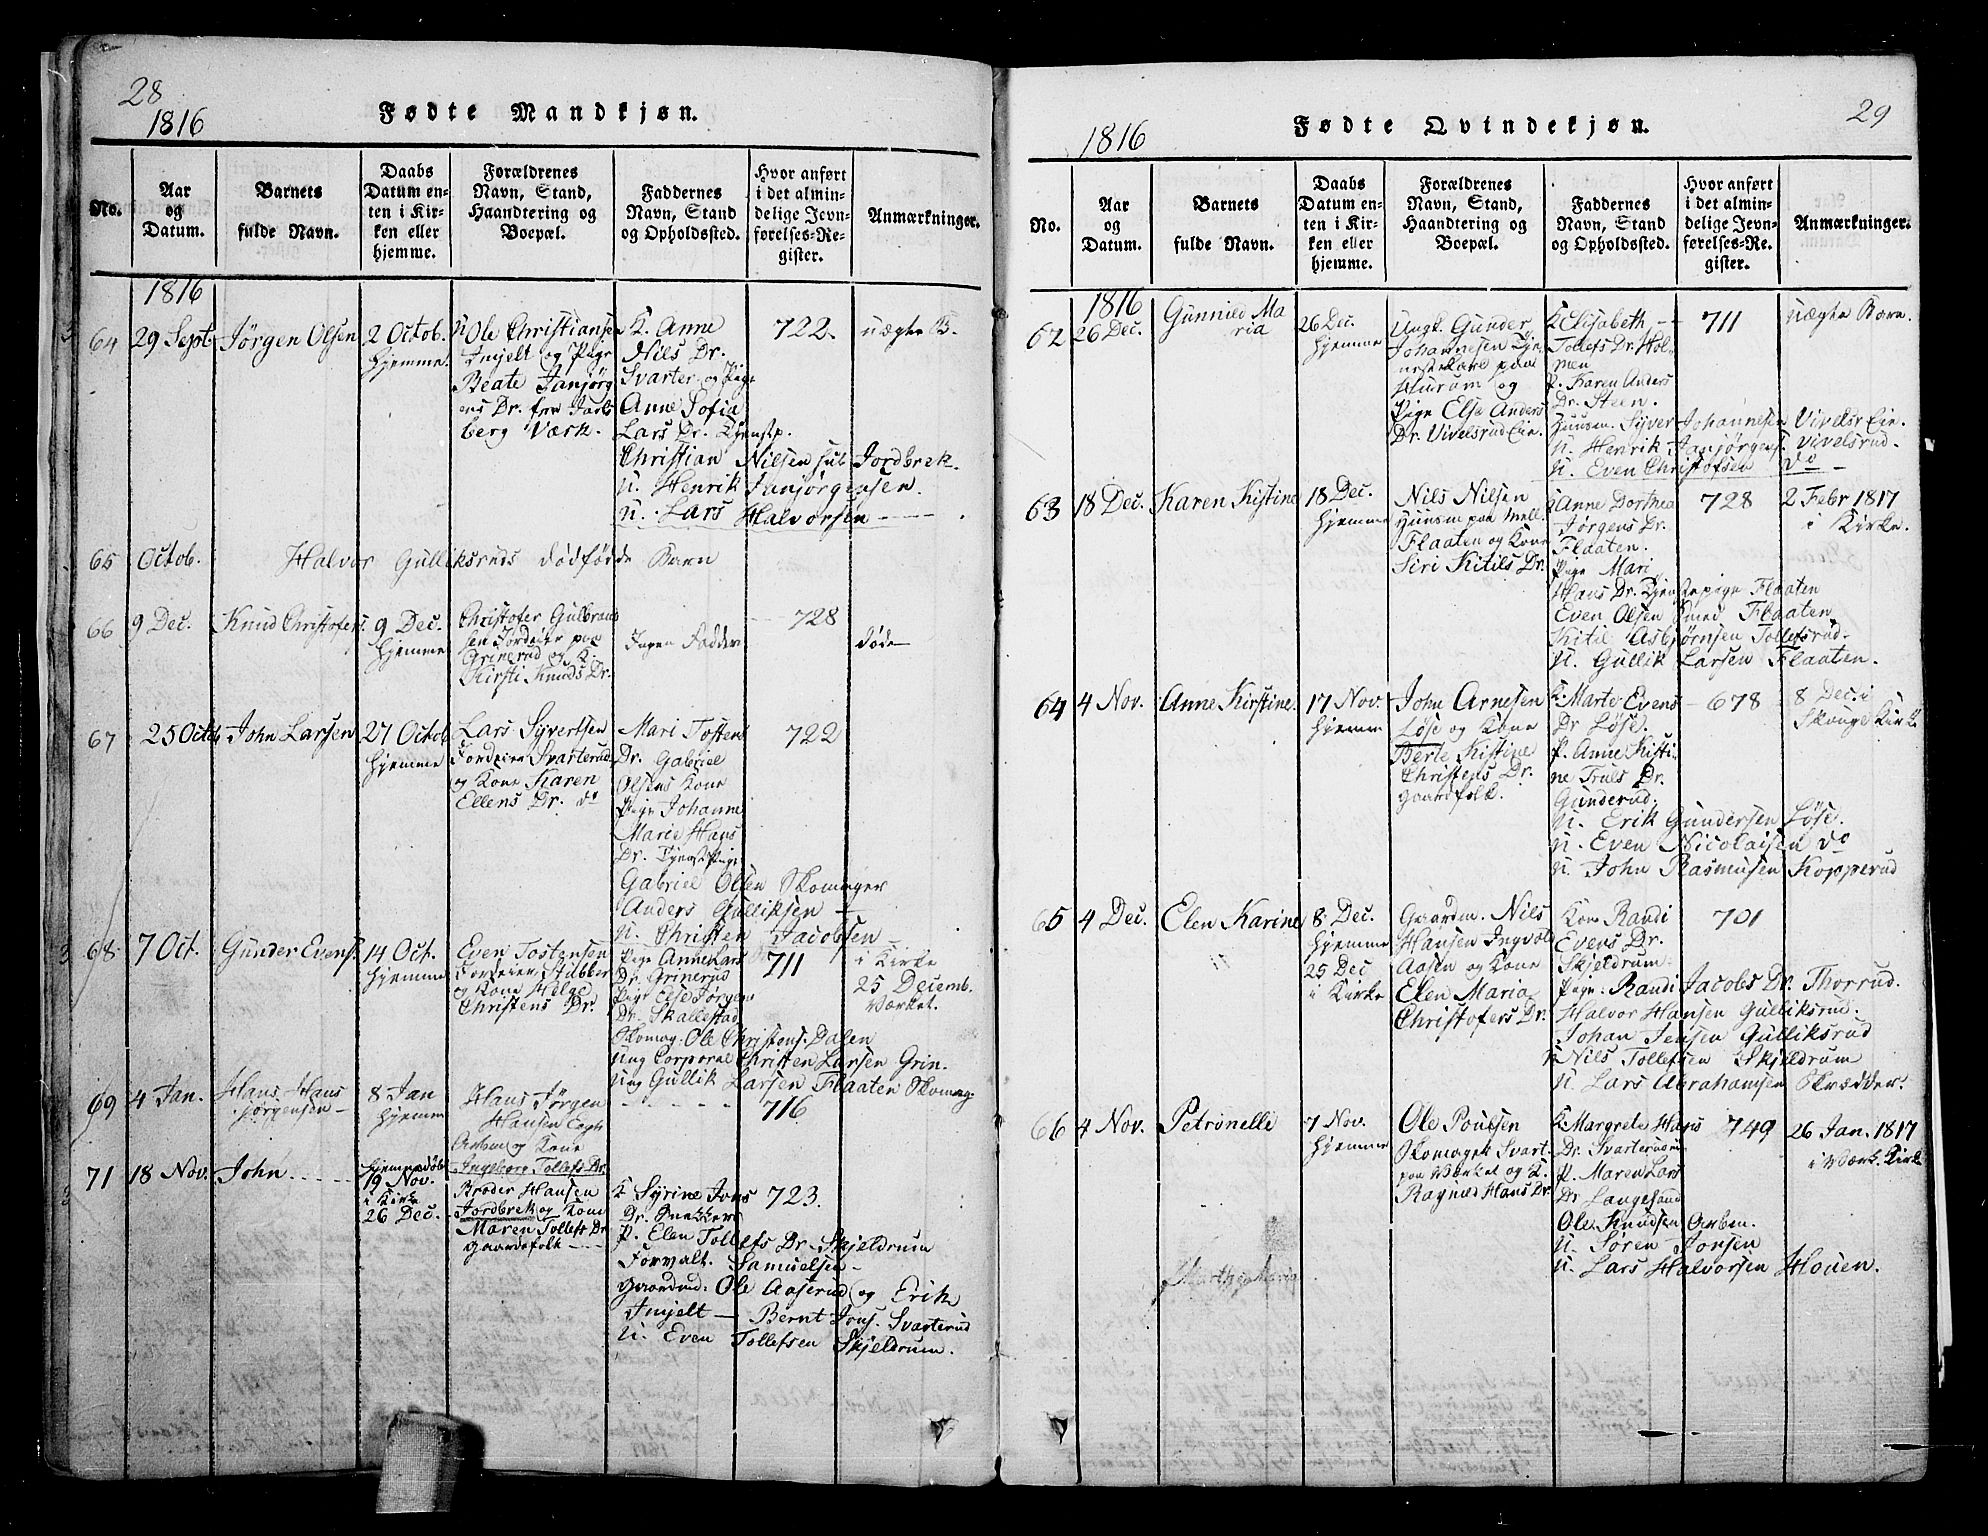 28
1816
Fødte Mandkjøn.
No.
Aar
og
Datum.
Barnets
fulde Navn.
Daabs
Datum en-
ten i Kir-
ken eller
hjemme.
Forældrenes
Navn, Stand,
Haandtering og
Boepæl.
Faddernes
Navn, Stand
og Opholdssted.
Hvor anført
i det almin-
delige Jevn-
førelses-Re-
gister.
Anmærkninger.
1816
64
29 Sept.
Jørgen Olsen
2 Octob.
hjemme.
U Ole Christiansen
Imjelt og Pige
Beate Janjørg
ens Dr. fra Jarls
berg Værk.
K. Anne
Nils Dr.
Svarter og Pige
Anne Sofia
Lars Dr. Tjenstp.
Christian Nilsen Jordbrek.
U. Henrik Janjørgensen.
U. Lars Halvorsen
722
uægte B.
65
Octob.
Halvor Gulliksruds dødfødde Barn
66
9 Dec.
Knud Christofers.
9 Dec.
hjemme
Christofer Gulbrand
sen Jordeier paa
Grinerud og K.
Kirsti Knuds Dr.
Ingen Fadder
728
døde
67
25 Octob
John Larsen
27 Octob
hjemme
Lars Syvertsen
Jordeier Svarterud
og Kone Karen
Ellens Dr. do
Mari Tosten
Dr. Gabriel
Olsens Kone
Pige Johanne
Marie Hans
Dr. Tjenstpige
Gabriel Olsen Skomager
Anders Gulliksen
U. Christen Jacobsen
722
68
7 Oct.
Gunder Evens.
14 Oct.
hjemme
Even Tostensen
Jordeier Stubber
og Kone Helge
Christens Dr.
Pige Anne Lars
Dr. Grinerud
Pige Else Jørgen
Dr. Skallestad
Skomag. Ole Christens. Dalen
Ung Corporal Christen Larsen Grin.
Ung Gullik Larsen Flaaten Skomag.
711
i Kirke
25 Decemb.
Værket.
69
4 Jan.
Hans Hans
jørgensen
8 Jan
hjemme
Hans Jørgen
Hansen
Arbm og Kone
Ingeborg Tollefs Dr.
716
71
18 Nov.
John
hjemmedøbt
19 Nov.
i Kirke
26 Dec.
Broder Hansen
Jordbrek og Kone
Maren Tollefs Dr
gaardsfolk
K Syrine Jons
Dr. Snekker
P. Elen Tollefs Dr. Skjeldrum
Forvalt. Samuelsen
Gaardmd. Ole Aaserud og Erik
Imjelt - Bernt Jons. Svarterud
U. Even Tollefsen Skjeldrum.
723.
29
1816
Fødte Qvindekjøn.
No.
Aar
og
Datum.
Barnets
fulde Navn.
Daabs
Datum en-
ten i Kir-
ken eller
hjemme.
Forældrenes
Navn, Stand,
Haandtering og
Boepæl.
Faddernes
Navn, Stand
og Opholdssted.
Hvor anført
i det almin-
delige Jevn-
førelses-Re-
gister.
Anmærkninger.
1816
62
26 Dec.
Gunnild Ma
ria
26 Dec.
hjemme
Ungk. Gunder
Johannesen Tje
nestekarl paa
Hurum og
Pige Else Anders
Dr. Vivelsrud Eie.
K Elisabeth
Tollefs Dr. Hol
men
P. Karen Anders
Dr. Steen.
Huusm. Syver Johannesen Vivelsr Eie.
U. Henrik Janjørgens. Vivelsrud.
U. Even Christofsen do
711
uægte Barn.
63
18 Dec.
Karen Kistine
18 Dec.
hjemme
Nils Nilsen
Huusm paa Mell.
Flaaten og Kone
Siri Kitils Dr.
K Anne Dorthea
Jørgens Dr.
Flaaten.
Pige Mari
Hans Dr. Tjenstepige Flaaten
Even Olsen Smed Flaaten
Kitil Asbjørnsen Tollefsrud
U. Gullik Larsen Flaaten.
728
2 Febr 1817
i Kirke.
64
4 Nov.
Anne Kirstine.
17 Nov.
hjemme
John Arnesen
Løse og Kone
Berte Kistine
Christens Dr.
gaardfolk.
K. Marte Evens
Dr Løse.
P. Anne Kisti
ne Truls Dr.
Gunderud.
U. Erik Gundersen Løse.
U. Even Nicolaisen do
U. John Rasmusen Kopperud
678
8 Dec. i
Skouge Kirk
65
4 Dec.
Elen Karine
8 Dec.
hjemme
25 Dec
i Kirke
Gaardm. Nils
Hansen Ingvold
Aasen og Kone
Elen Maria
Christofers Dr.
Kone Randi
Evens Dr.
Skjeldrum
Pige: Randi Jacobs Dr. Thorrud.
Halvor Hansen Gulliksrud.
Johan Jensen Gulliksrud
U Nils Tollefsen Skjeldrum
U. Lars Abrahamsen Skrædder.
701
66
4 Nov.
Petronelle
7 Nov.
hjemme
Ole Poulsen
Skomager Svart
paa Værket og K.
Ragnild Hans Dr.
K Margrete Hans
Dr. Svarterud
P. Maren Lars
Dr Langesund
Ole Knudsen Arbm.
U. Søren Jonsen
U. Lars Halvorsen Houen.
749
26 Jan. 1817
i Værk. Kirk
Marthe Maria